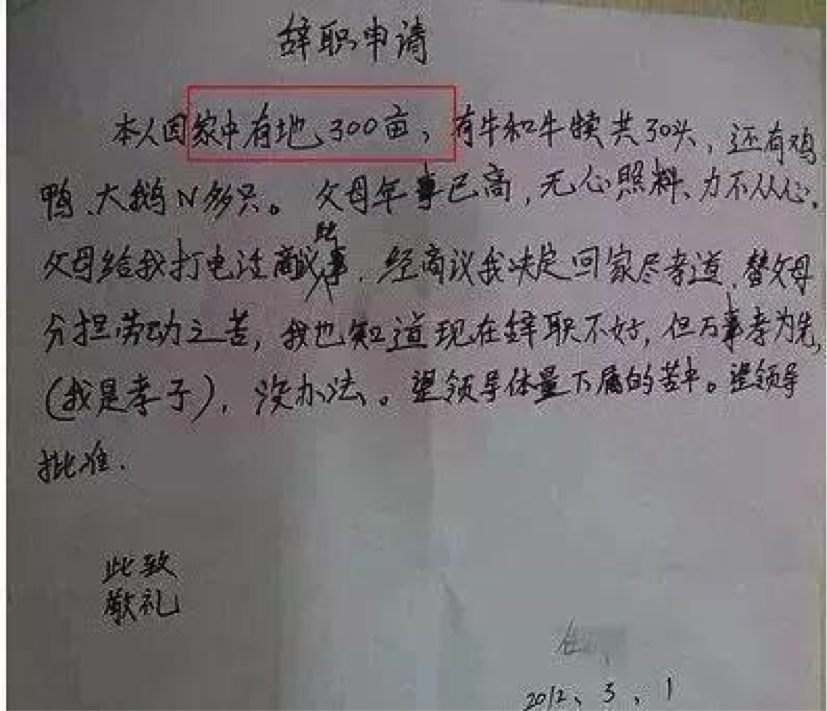 辞职申请
本人因家中有地300亩，有牛和牛犊共30头，还有鸡
鸭、大鹅N多只。父母年事已高，无心照料、力不从心。
父母给我打电话商议此事，经商议我决定回家尽孝道，替父母
分担劳动之苦，我也知道现在辞职不好，但万事孝为先，
（我是孝子），没办法。望领导体量下属的苦中。望领导
批准.
此致
敬礼
2012、5、1